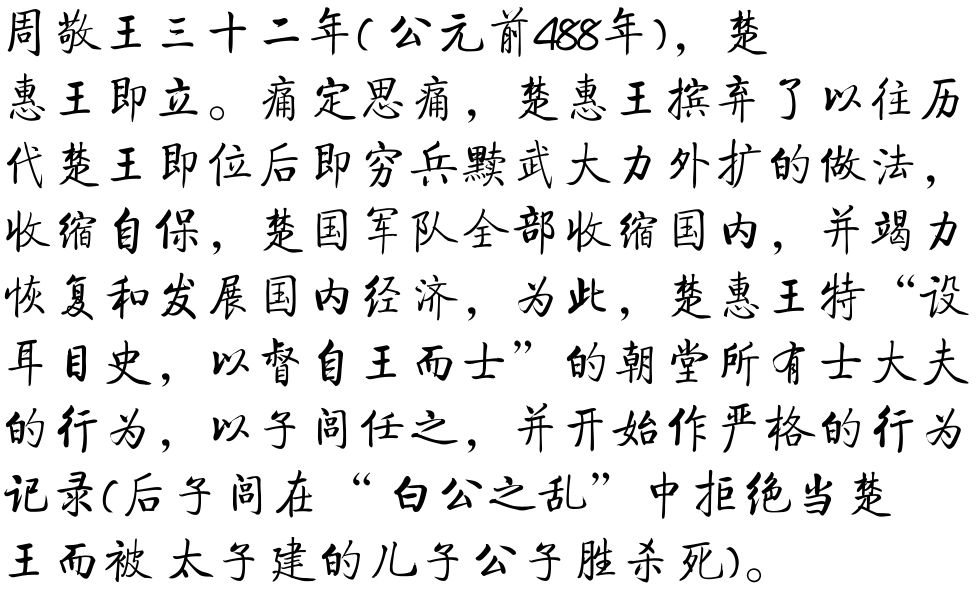 周敬王三十二年(公元前488年)，楚
惠王即立。痛定思痛，楚惠王摈弃了以往历
代楚王即位后即穷兵黩武大力外扩的做法，
收缩自保，楚国军队全部收缩国内，并竭力
恢复和发展国内经济，为此，楚惠王特“设
耳目史，以督自王而士”的朝堂所有士大夫
的行为，以子闾任之，并开始作严格的行为
记录(后子闾在“白公之乱”中拒绝当楚
王而被太子建的儿子公子胜杀死)。